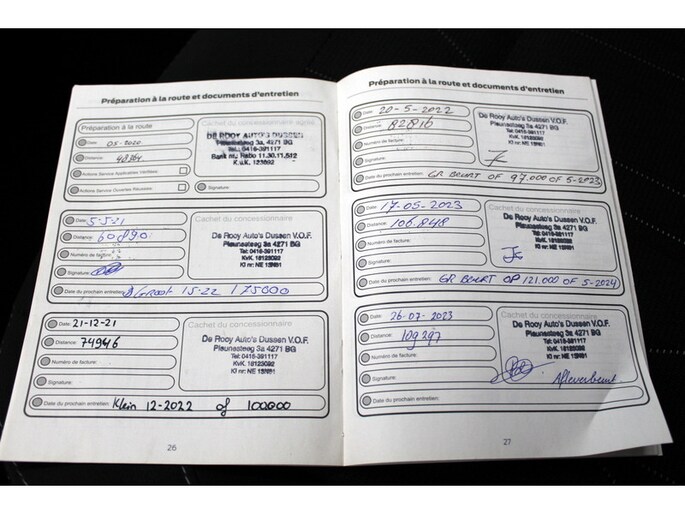 Préparation à la route et documents d'entretien
Préparation à la route
Date: 05-2020
Distance:
Actions Service Applicables Vérifiées:
Actions Service Ouvertes Réussies:
Cachet du concessionnaire agréé
DE ROOY AUTO'S DUSSEN
Pleunssteeg 3a, 4271 BG
Tel.: 0416-391117
Bank nr.: Rabo 11.30.11.512
K.v.K. 123692
Signature
Date: 5-5-21
Distance: 60890
Numéro de facture:
Signature:
Date du prochain entretien: 15-22 / 75000
Cachet du concessionnaire
De Rooy Auto's Dussen V.O.F.
Pleunssteeg 3a 4271 BG
Tel: 0416-391117
KvK 18123092
Kl nr: NE 15N91
Date: 21-12-21
Distance: 74946
Numéro de facture:
Signature:
Date du prochain entretien: Klein 12-2022 of 100000
Cachet du concessionnaire
De Rooy Auto's Dussen V.O.F.
Pleunssteeg 3a 4271 BG
Tel: 0416-391117
KvK 18123092
Kl nr: NE 15N91
26
Préparation à la route et documents d'entretien
Date: 20-5-2022
Distance: 82816
Numéro de facture:
Signature:
Date du prochain entretien: GR BEURT OF 97.000 OF 5-2023
De Rooy Auto's Dussen V.O.F.
Pleunssteeg 3a 4271 BG
Tel: 0416-391117
KvK 18123092
Kl nr: NE 15N91
Date: 17-05-2023
Distance: 106.848
Numéro de facture:
Signature:
Date du prochain entretien: GR BEURT OP 121.000 OF 5-2024
Cachet du concessionnaire
De Rooy Auto's Dussen V.O.F.
Pleunssteeg 3a 4271 BG
Tel: 0416-391117
KvK 18123092
Kl nr: NE 15N91
Date: 26-07-2023
Distance: 109297
Numéro de facture:
Signature:
Date du prochain entretien:
Cachet du concessionnaire
De Rooy Auto's Dussen V.O.F.
Pleunssteeg 3a 4271 BG
Tel: 0416-391117
KvK 18123092
Kl nr: NE 15N91
Afleverbeurt
27